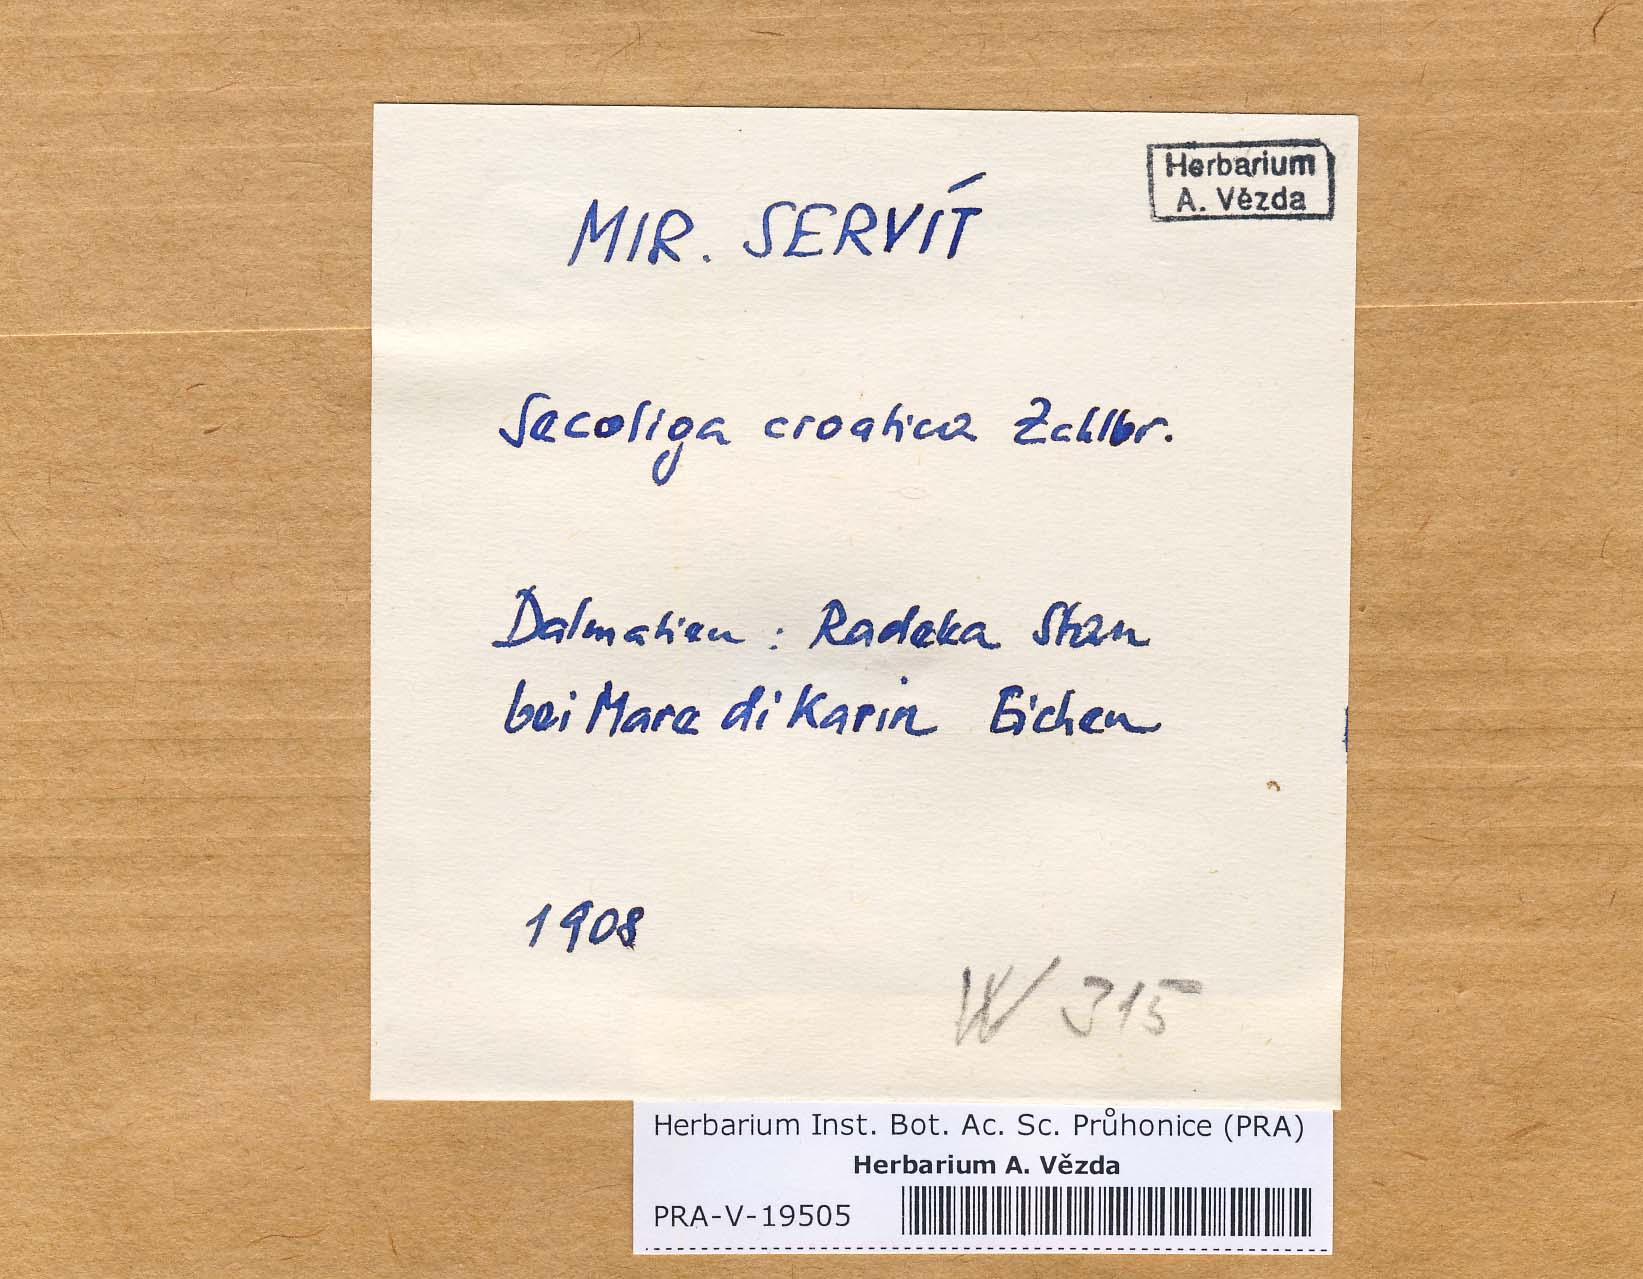 Herbarium
A. Vězda
MIR. SERVÍT
Secoliga croatica Zahlbr.
Dalmatien : Radeka Stan
bei Mare di Karin Eichen
1908
W 315
Herbarium Inst. Bot. Ac. Sc. Průhonice (PRA)
Herbarium A. Vězda
PRA-V-19505